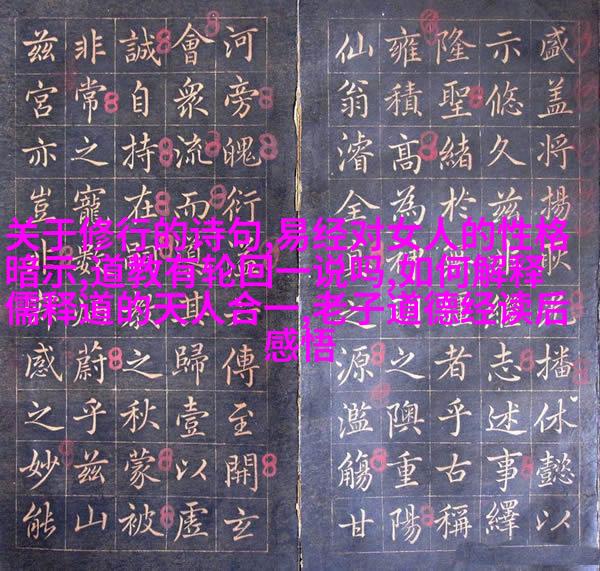 关于修行的诗句,易经对女人的性格
暗示,道教有轮回一说吗,如何解释
儒释道的天人合一,老子道德经读后
感悟
盛盖将揚耿播休懿以
示悠久兹非志述事繹
隆聖緒於者乎古稱
雍積高為裨之隩重陽
仙翁濬全真之源濫觴甘
河旁魄衍傳至開玄
會衆流而歸壹以虛
誠自持在之秋蒙被
非常之寵數蔚乎兹山
兹宮亦豈非感之妙能